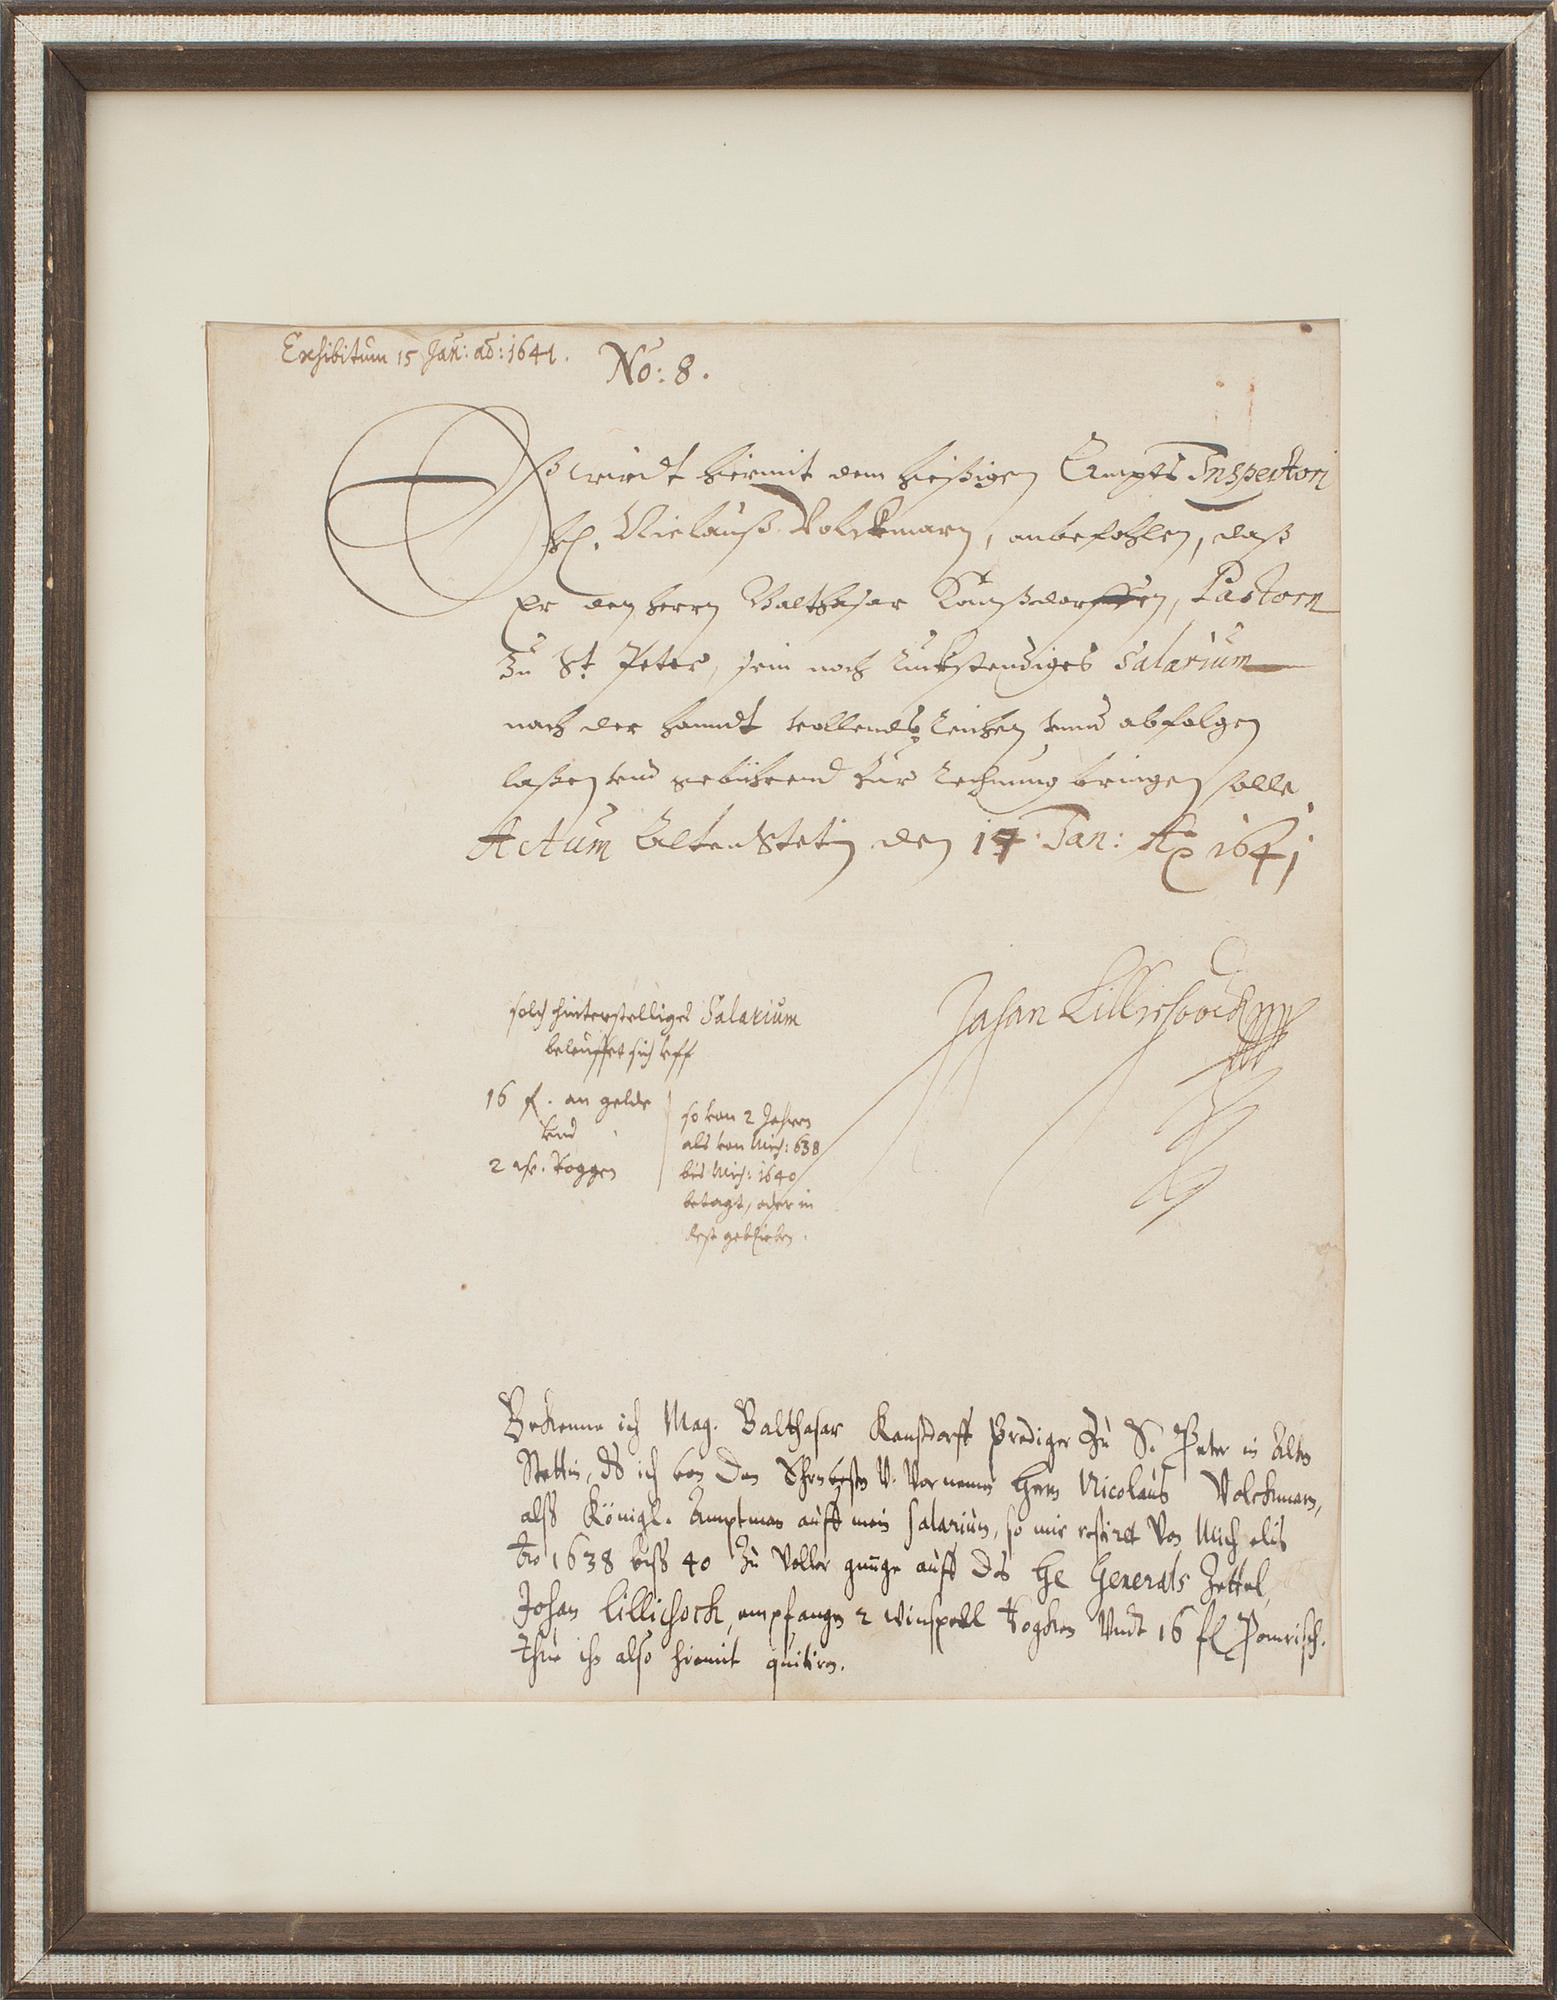 Exhibitum 15 Jan: ao: 1641.
No: 8.
Eß wirdt hiermit dem hießigen Ampts Inspectori
H. Niclauß Volckmarn, anbefohlen, daß
Er den herrn Balthasar Kanßdorffen, Pastorn
Zu St. Peter, sein noch Ruckstendiges Salarium
nach der handt vollends reichen vnnd abfolgen
laßen vnd gebührend zur rechnung bringen solle
Actum Alten Stetin den 14 Jan: Ao 1641
Johan Lilliehoock mp
solch hinterstelliges Salarium
beleuffet sich vff
16 fl. an gelde
vnd
2 wsp. Roggen
so von 2 Jahren
als von Mich: 638
bis Mich: 1640
betagt, oder in
Rest geblieben.
Bekenne ich Mag. Balthasar Kanstdorff Prediger Zu S. Peter in Alten
Stettin, ds ich von den Ehrnvesten V. Vornemen Hern Nicolaus Volckmarn,
alß Königl. Amptman auff mein salarium, so mir restiret Von Michaelis
1638 biß 40 Zu Voller gnuge auff des He Generals Zettel,
Johan Lilliehock, empfangen 2 winspell Rogken Vndt 16 fl Pomrisch.
Thue ihn also hiemit quitiren.